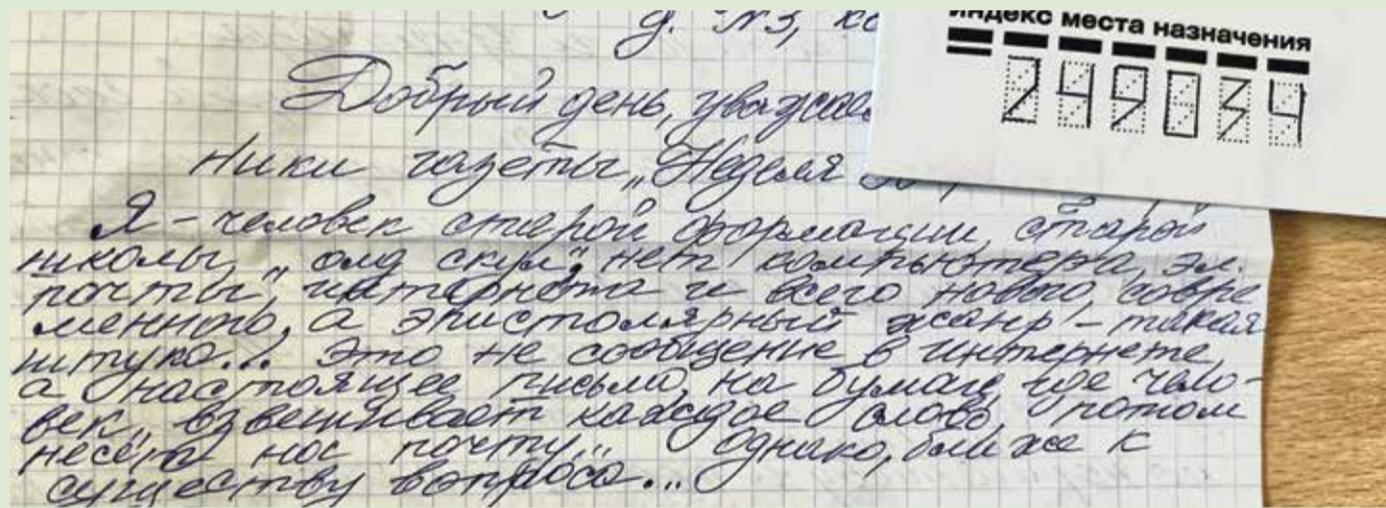 д. №3, ко
индекс места назначения
249034
Добрый день, уважае
ники газеты „Неделя
Я - человек старой формации, старой
школы, „олд скул", нет компьютера, эл.
почты, интернета и всего нового, совре
менного, а эпистолярный жанр - такая
штука... Это не сообщение в интернете,
а настоящее письмо, на бумаге, где чело-
век „взвешивает каждое слово, потом
несёт на почту... Однако, ближе к
существу вопроса...